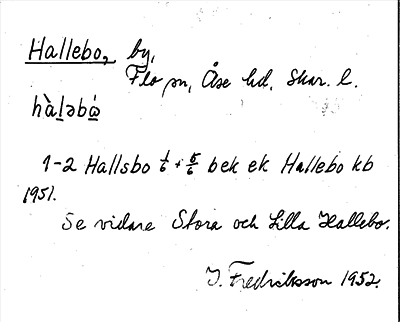 Hallebo, by,
Flo sn, Åse hd, Skar. l.
hàləbω
1-2 Hallsbo 1/6 + 5/6 bek ek Hallebo kb
1951.
Se vidare Stora och Lilla Hallebo.
I. Fredriksson 1952.